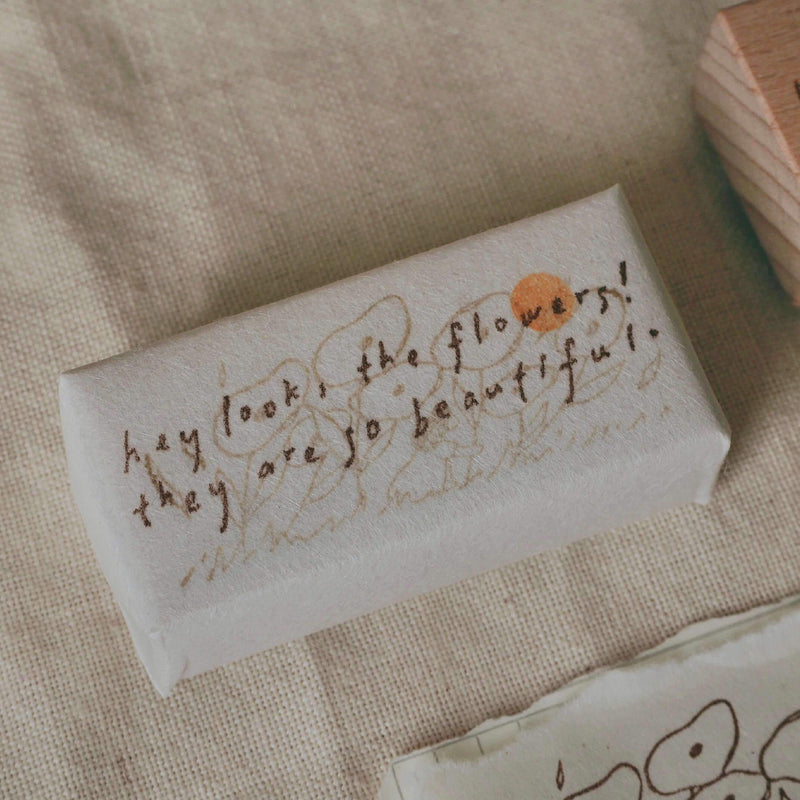 hey look, the flowers!
they are so beautiful.